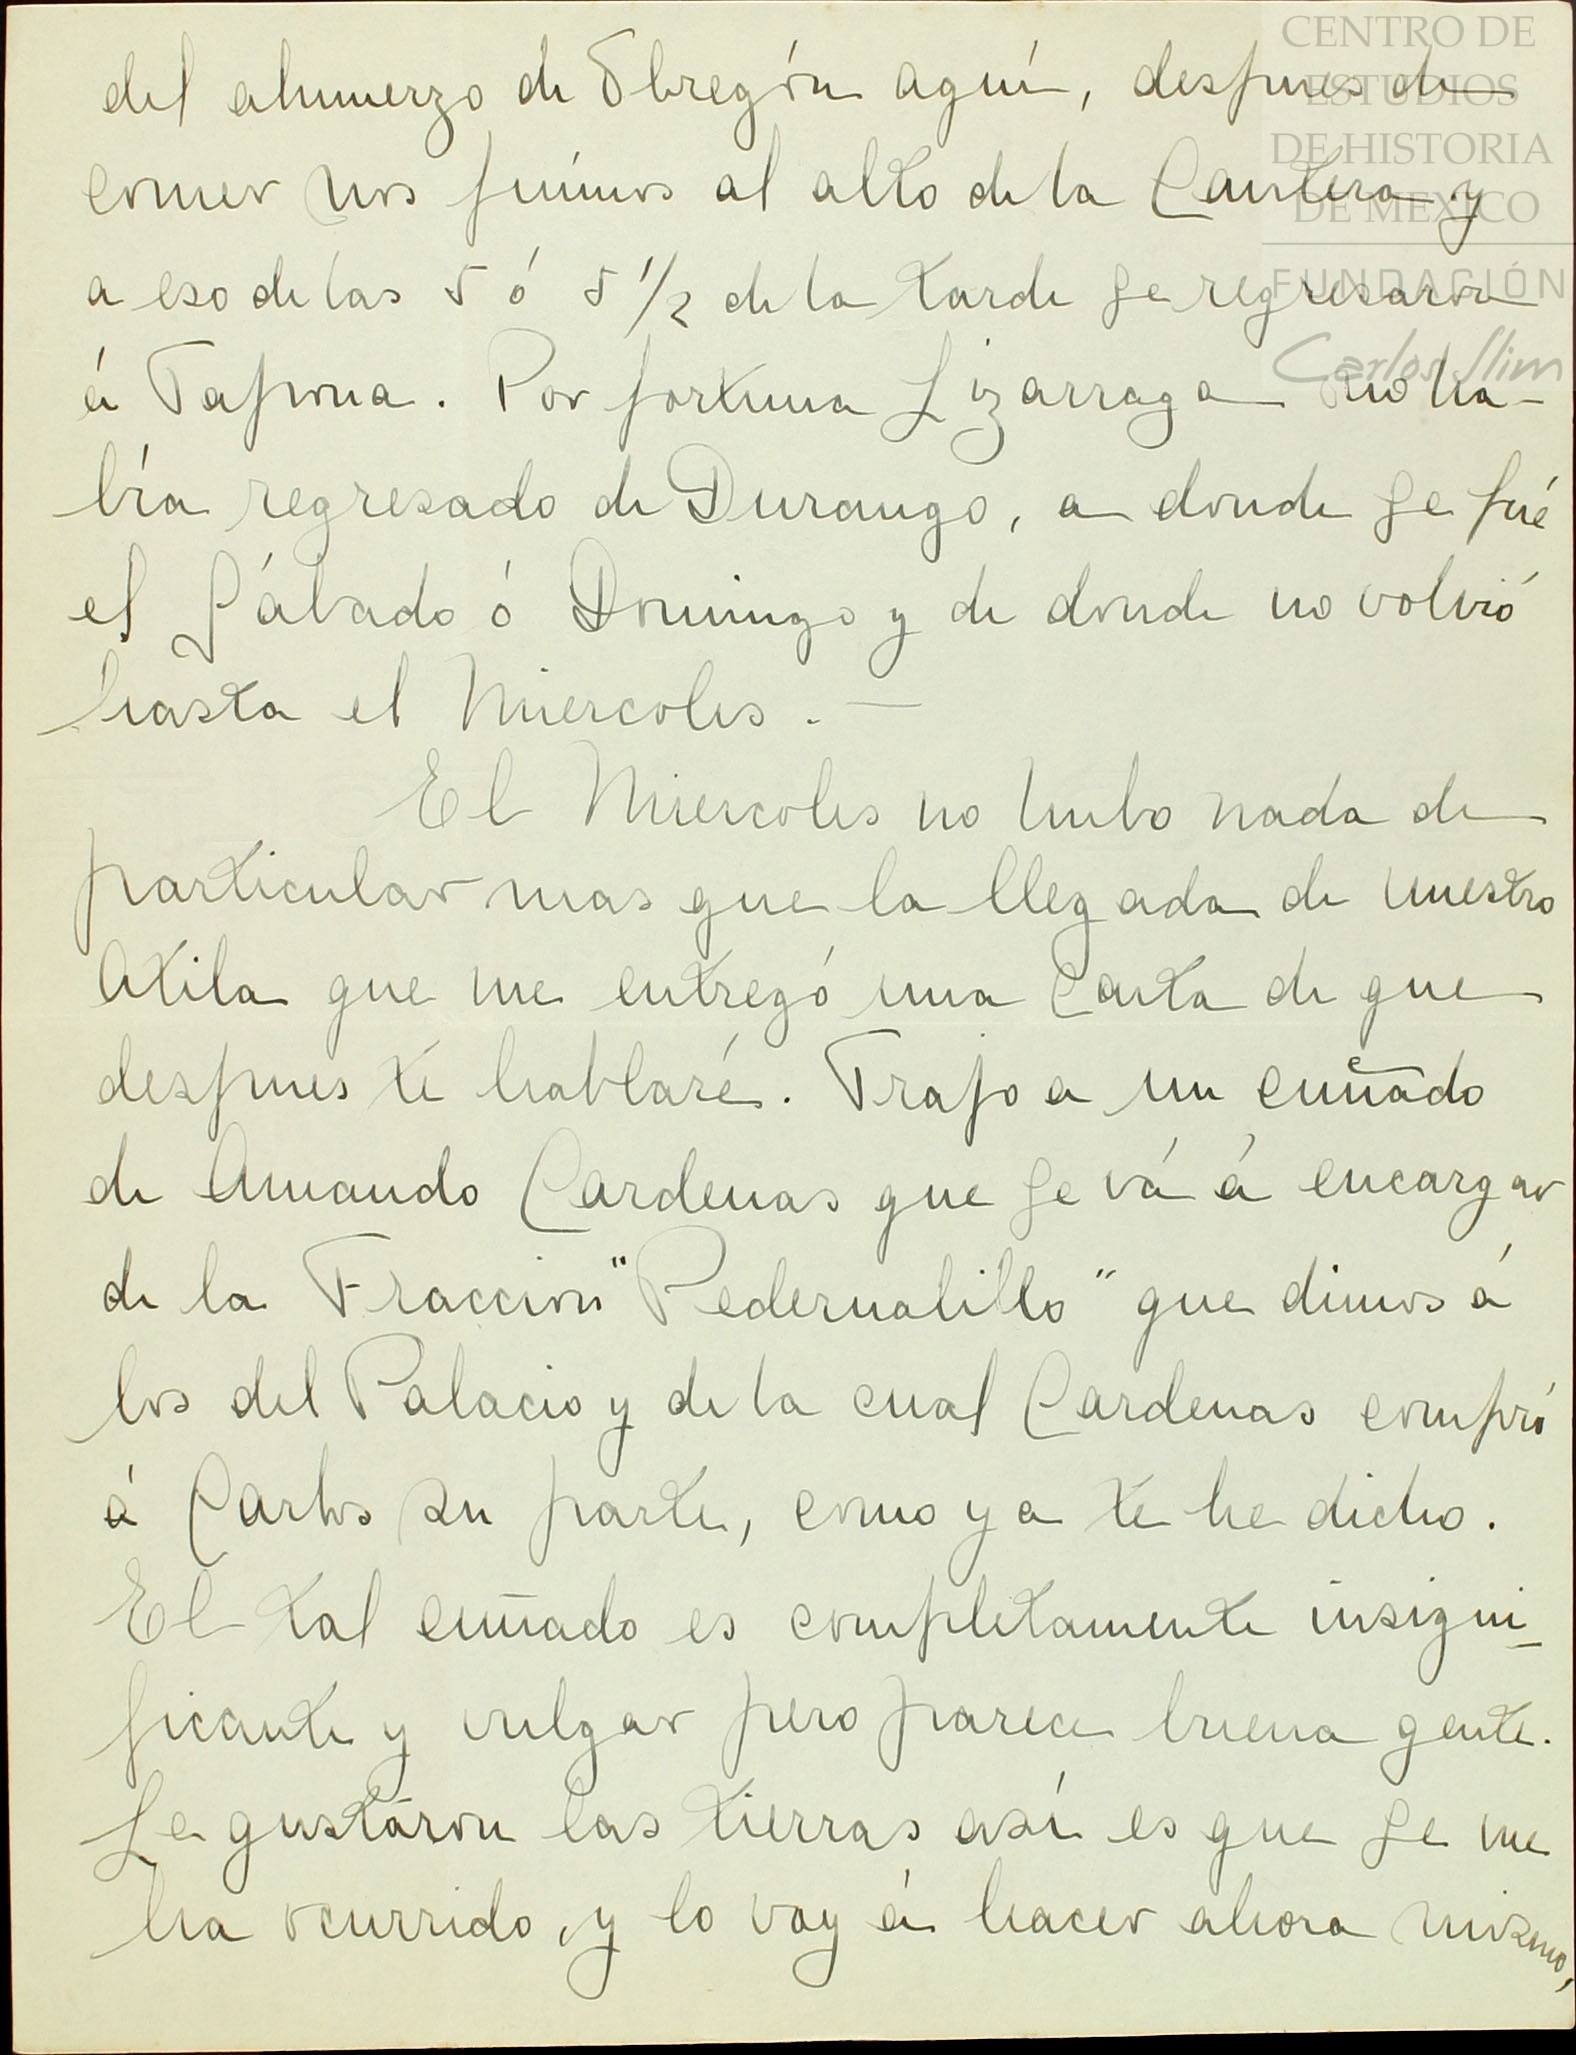 del almuerzo de Obregón aquí, despues de
comer nos fuímos al alto de la Cantera y
a eso de las 5 ó 5 1/2 de la tarde se regresaron
á Tapona. Por fortuna Lizarraga no ha-
bía regresado de Durango, a donde se fué
el Sábado ó Domingo y de donde no volvió
hasta el Miercoles. —
El Miercoles no hubo nada de
particular mas que la llegada de nuestro
Atila que me entregó una Carta de que
despues te hablaré. Trajo a un cuñado
de Amando Cardenas que se vá á encargar
de la Fraccion "Pedernalillo" que dimos á
los del Palacio y de la cual Cardenas compró
á Carlos su parte, como ya te he dicho.
El tal cuñado es completamente insigni-
ficante y vulgar pero parece buena gente.
Le gustáron las tierras así es que se me
ha ocurrido, y lo voy á hacer ahora mismo,
CENTRO DE
ESTUDIOS
DE HISTORIA
DE MEXICO
FUNDACIÓN
Carlos Slim